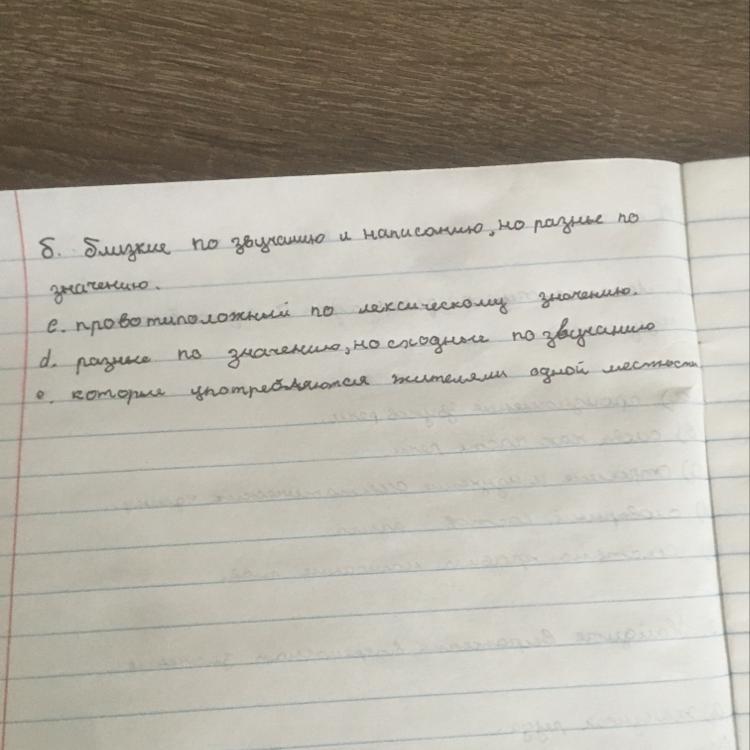 б. близкие по звучанию и написанию, но разные по
значению.
с. противоположный по лексическому значению.
d. разные по значению, но сходные по звучанию
е. которые употребляются жителями одной местности